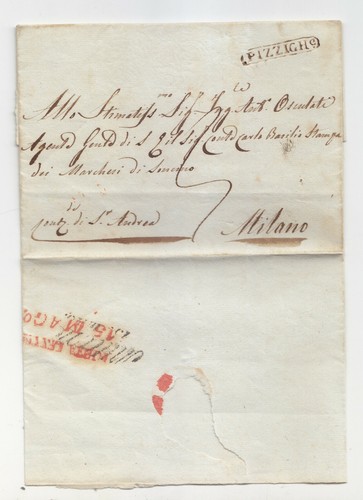 PIZZIGH.e
Allo Stimatiss.mo Sig.r Ing.e Ant.o Osculati
Agente Genle di S. E. il Sig. Conte Carlo Basilio Stampa
dei Marchesi di Soncino
di S.t Andrea Milano
AGO